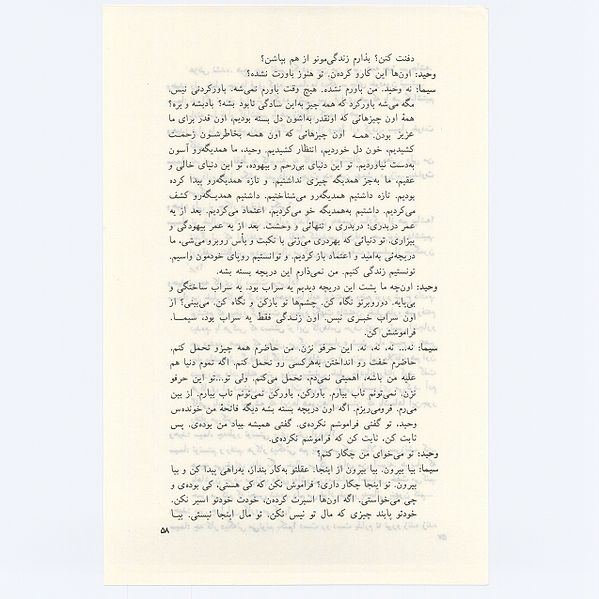 دفنت کنن؟ بذارم زندگی‌مونو از هم بپاشن؟
وحید: اون‌ها این کارو کرده‌ن. تو هنوز باورت نشده؟
سیما: نه وحید. من باورم نشده. هیچ وقت باورم نمی‌شه. باورکردنی نیس،
مگه می‌شه باورکرد که همه چیز به‌این سادگی نابود بشه؟ بادبشه و بره؟
همهٔ اون چیزهائی که اونقدر به‌اشون دل بسته بودیم، اون قدر برای ما
عزیز بودن. همـه اون چیزهائی که اون همـه بخاطرشـون زحمـت
کشیدیم، خون دل خوردیم، انتظار کشیدیم. وحید، ما همدیگه‌رو آسون
به‌دست نیاوردیم. تو این دنیای بی‌رحم و بیهوده، تو این دنیای خالی و
عقیم، ما به‌جز همدیگه چیزی نداشتیم. و تازه همدیگه‌رو پیدا کرده
بودیم. تازه داشتیم همدیگه‌رو می‌شناختیم. داشتیم همدیـگه‌رو کشف
می‌کردیم. داشتیم به‌همدیگه خو می‌کردیم. اعتماد می‌کردیم. بعد از یه
عمر دربدری؛ دربدری و تنهائی و وحشت. بعد از یه عمر بیهودگی و
بیزاری. تو دنیائی که بهردری می‌زنی با نکبت و یأس روبرو می‌شی، ما
دریچه‌ئی به‌امید و اعتماد باز کردیم. و توانستیم رویای خودمون واسیم.
تونستیم زندگی کنیم. من نمی‌ذارم این دریچه بسته بشه.
وحید: اون‌چه ما پشت این دریچه دیدیم یه سراب بود. یه سراب ساختگی و
بی‌پایه. دوروبرتو نگاه کن. چشم‌ها تو بازکن و نگاه کن. می‌بینی؟ از
اون سراب خبـری نیس. اون زنـدگی فقط یه سراب بود، سیمـا.
فراموشش کن.
سیما: نه... نه، نه، نه. این حرفو نزن. من حاضرم همه چیزو تحمل کنم.
حاضرم خفت رو انداختن به‌هرکسی رو تحمل کنم. اگه تموم دنیا هم
علیه من باشه، اهمیتی نمی‌دم، تحمل می‌کنم. ولی تو...تو این حرفو
نزن. نمی‌تونم تاب بیارم. باورکن، باورکن نمی‌تونم تاب بیارم. از بین
می‌رم. فرومی‌ریزم. اگه اون دریچه بسته بشه دیگه فاتحهٔ من خونده‌س
وحید، تو گفتی فراموشم نکرده‌ی. گفتی همیشه بیاد من بوده‌ی. پس
ثابت کن، ثابت کن که فراموشم نکرده‌ی.
وحید: تو می‌خوای من چکار کنم؟
سیما: بیا بیرون. بیا بیرون از اینجا. عقلتو به‌کار بنداز، یه‌راهی پیدا کن و بیا
بیرون. تو اینجا چکار داری؟ فراموش نکن که کی هستی، کی بوده‌ی و
چی می‌خواستی. اگه اون‌ها اسیرت کرده‌ن، خودت خودتو اسیر نکن.
خودتو پابند چیزی که مال تو نیس نکن. تو مال اینجا نیستی. بیـا
۵۸